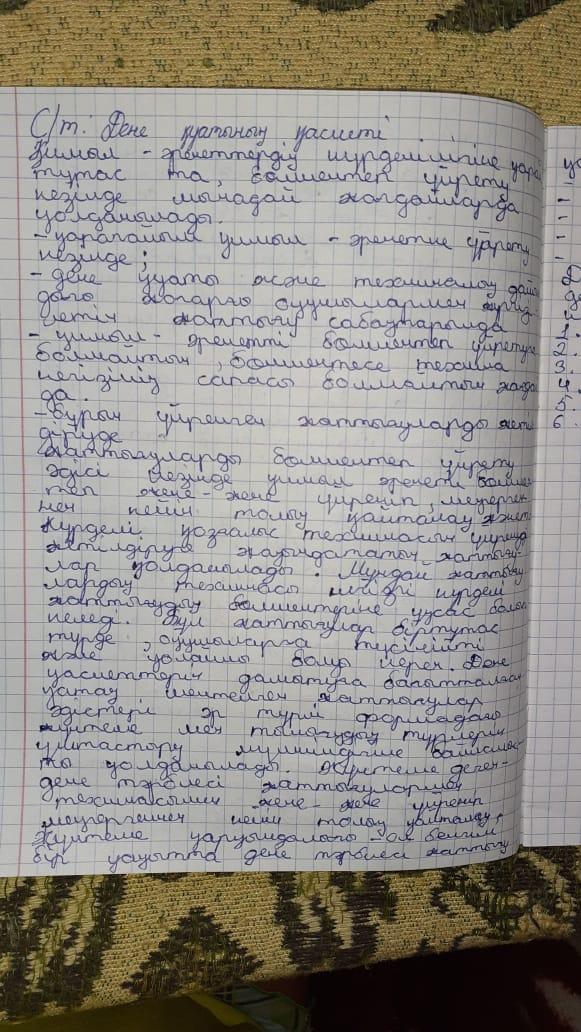 С/т: Дене қуатының қасиеті
Қимыл - әрекеттердің күрделілігіне қарай
тұтас та, бөлшектеп үйрету
кезінде мынадай жағдайларда
қолданылады.
- қарапайым қимыл - әрекетке үйрету
кезінде;
- дене қуаты және техникалық дайын
дығы жоғары оқушылармен жүргізі-
летін жаттығу сабақтарында
- қимыл - әрекетті бөлшектеп үйретуге
болмайтын, бөлшектесе техника
негізінің сапасы болмайтын жағдай
да.
- Бұрын үйренген жаттығуларды жеті
діруде
Жаттығуларды бөлшектеп үйрету
әдісі кезінде қимыл әрекеті бөлшек
теп жеке - жеке үйреніп, меңгерген
нен кейін толық қайталау жетіл
Күрделі қозғалыс техникасын үйренуд
жетілдіруге жақындататын жаттығу-
лар қолданылады. Мұндай жаттығу
лардың техникасы негізгі күрделі
жаттығудың бөлшектеріне ұқсас болып
келеді. Бұл жаттығулар біртұтас
түрде, оқушыларға түсінікті
және қолайлы болуы керек. Дене
қасиеттерін дамытуға бағытталған
қатаң шектелген жаттығулар
әдістері әр түрлі формадағы
жүктеме мен тынығудың түрлерін
ұштастыру мүмкіндігіне байланыс-
ты қолданылады. Жүктеме деген-
дене тәрбиесі жаттығуларының
техникасының жеке - жеке үйреніп
меңгергеннен кейін толық қайталау,
Жүктеме қарқындылығы - ол белгілі
бір уақытта дене тәрбиесі жаттығу
1.
2.
3.
4.
5.
6.